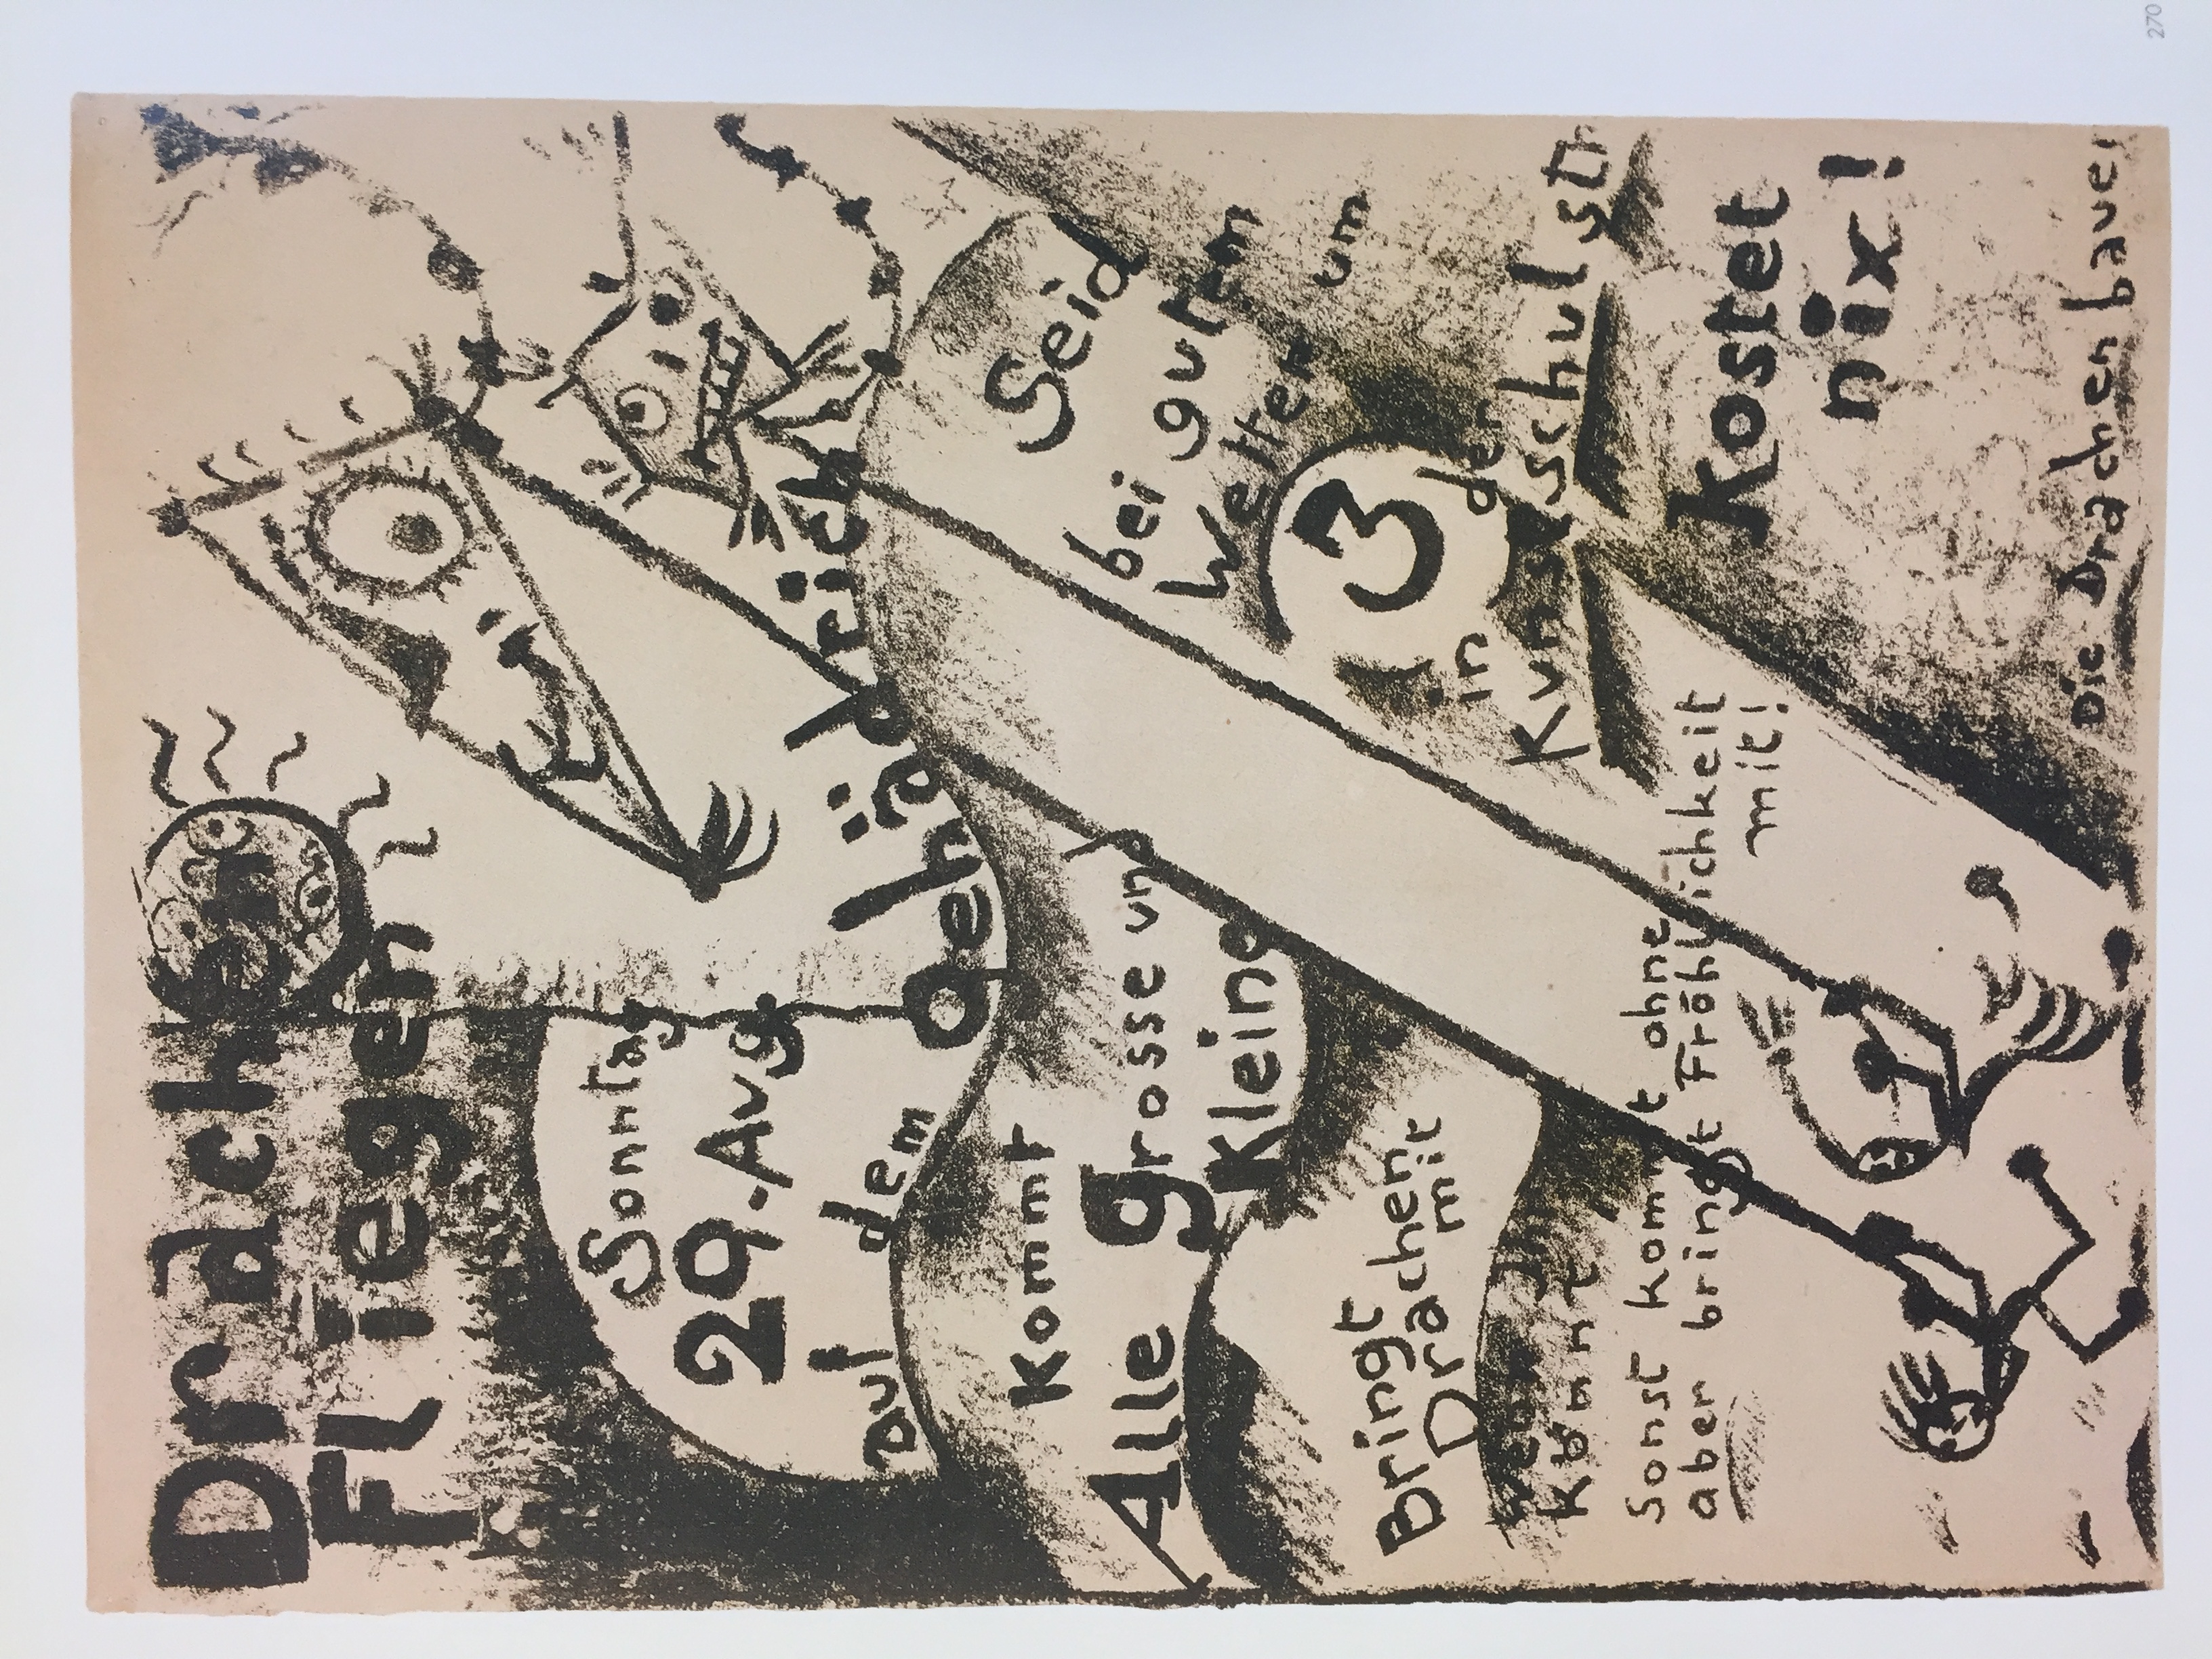 Drachen
Fliegen
Sonntag
29. Aug.
auf dem Gehädrich
Kommt
Alle grosse und
Kleine
Bringt
Drachen
mit
wenn Ihr
könnt
Sonst kommt ohne
aber bringt Fröhlichkeit
mit!
Seid
bei gutem
Wetter um
13
in der
Kunstschulstr
Kostet
nix!
Die Drachenbauer
270